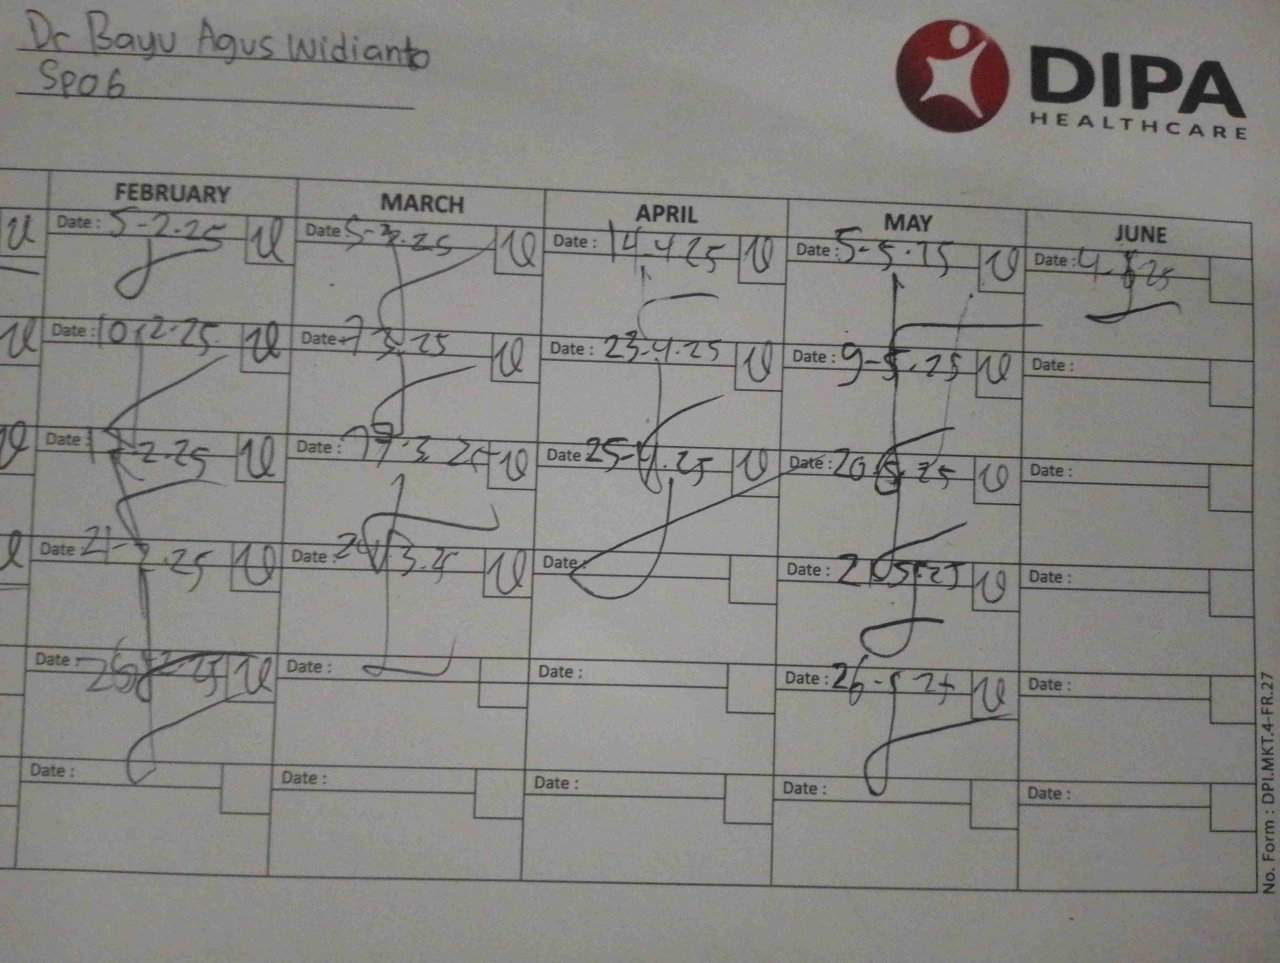 Dr Bayu Agus Widianto
SpOG
DIPA
HEALTHCARE
FEBRUARY MARCH APRIL MAY JUNE
Date : 5-2-25 Date 5-3-25 Date : 14-4-25 Date : 5-5-25 Date : 4-6-25
Date : 10-2-25 Date 7-3-25 Date : 23-4-25 Date : 9-5-25 Date :
Date 2-25 Date : 3 25 Date 25-4-25 Date : 20 5 25 Date :
Date 21-2-25 Date : 3-25 Date : Date : 5-25 Date :
Date : 26-2-25 Date : Date : Date : 26-5-25 Date :
Date : Date : Date : Date : Date :
No. Form : DPI.MKT.4-FR.27